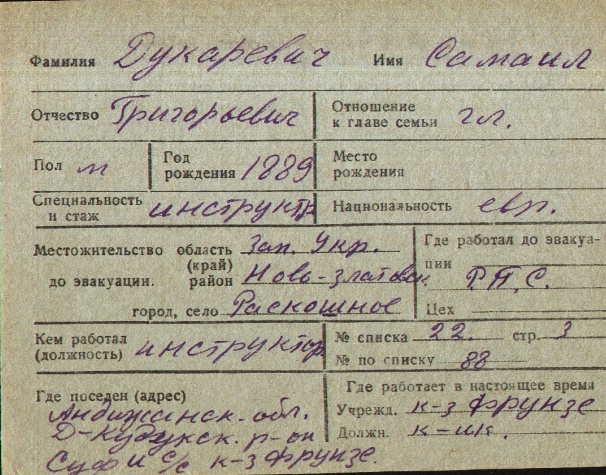 Фамилия Дукаревич Имя Самаил
Отчество Григорьевич Отношение к главе семьи гл.
Пол м Год рождения 1889 Место рождения
Специальность и стаж инструктр Национальность евр.
Местожительство до эвакуации. область (край) Зап. Укр.
район Ново-златовск
город, село Раскошное
Где работал до эвакуации Р.П.С.
Цех
Кем работал (должность) инструктор № списка 22. стр. 3
№ по списку 88
Где поселен (адрес)
Андижанск. обл.
Д-Кудукск. р-он
Суфи с/с к-з Фрунзе.
Где работает в настоящее время
Учрежд. к-з Фрунзе
Должн. к-ик.